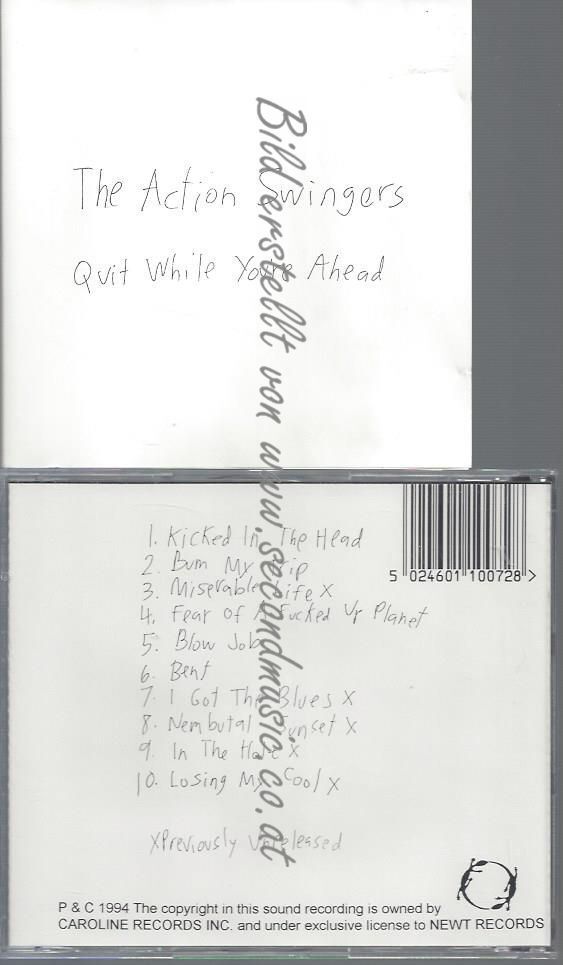 The Action Swingers
Quit While You're Ahead
Bild erstellt von www.secondmusic.co.at
1. Kicked In The Head
2. Bum My Trip
3. Miserable Life X
4. Fear Of A Fucked Up Planet
5. Blow Job
6. Bent
7. I Got The Blues X
8. Nembutal Sunset X
9. In The Hole X
10. Losing My Cool X
XPreviously Unreleased
5 024601 100728 >
P & C 1994 The copyright in this sound recording is owned by
CAROLINE RECORDS INC. and under exclusive license to NEWT RECORDS